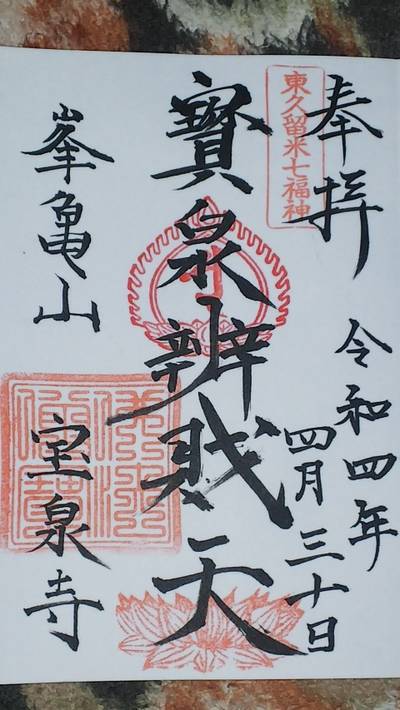 奉拝
東久留米七福神
令和四年
四月三十日
寳泉辨財天
峯亀山
宝泉寺